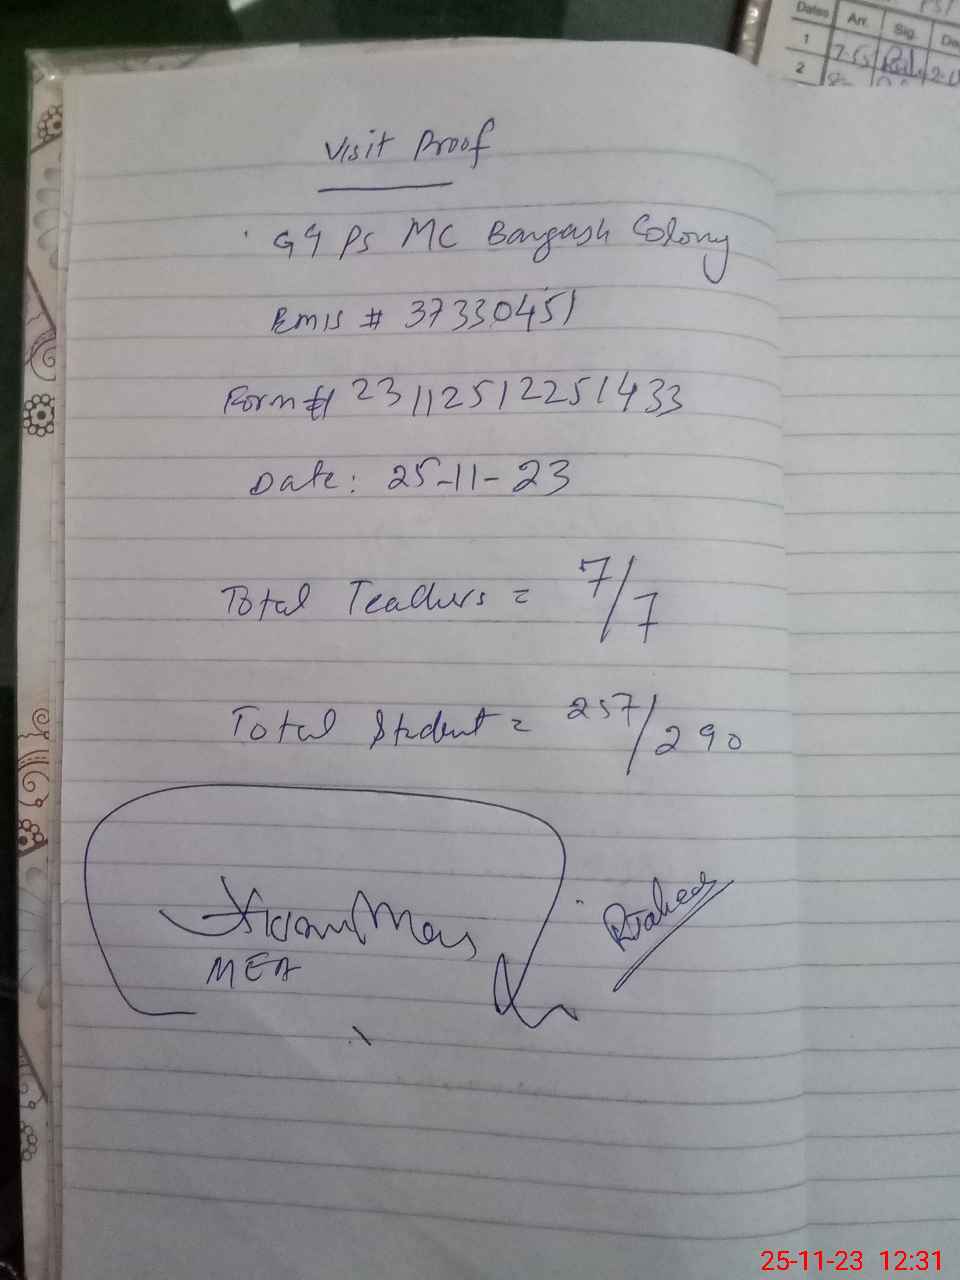 Dates Arr. Sig.
1 7-55
2
Visit Proof
G G PS MC Bangash Colony
Emis # 37330451
Form # 23112512251433
Date: 25-11-23
Total Teachers = 7/7
Total Student = 257/290
MEA
25-11-23 12:31